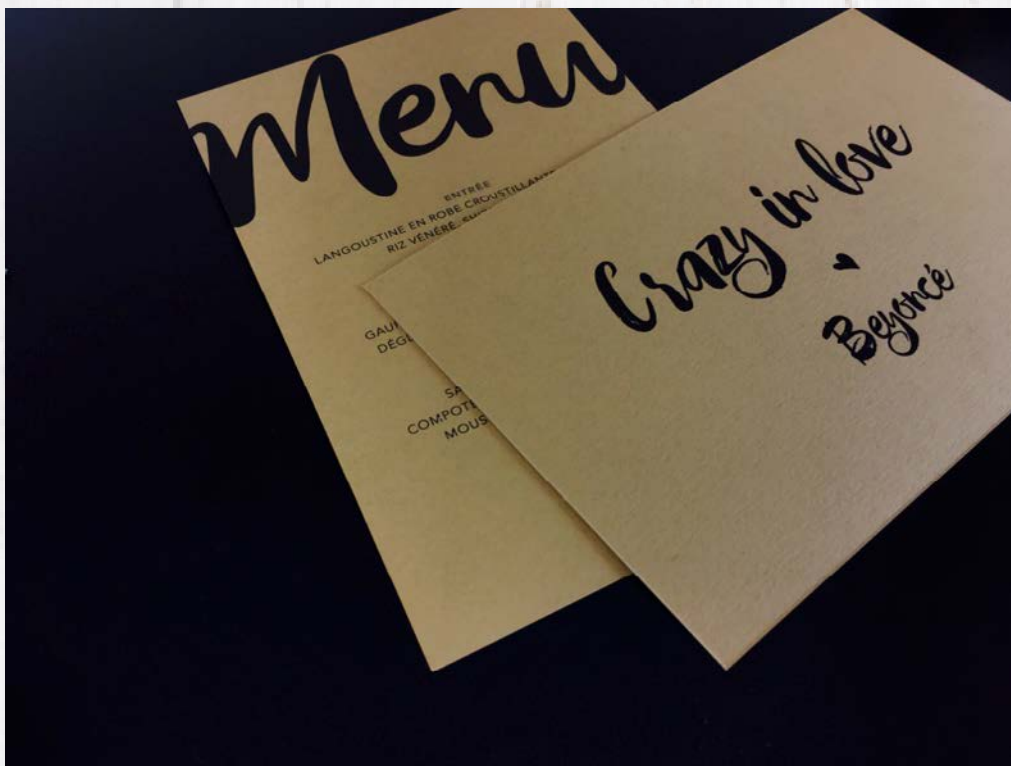 Menu
ENTRÉE
LANGOUSTINE EN ROBE CROUSTILLANTE
RIZ VÉNÉRÉ,
COMPOTE
Crazy in love
Beyoncé